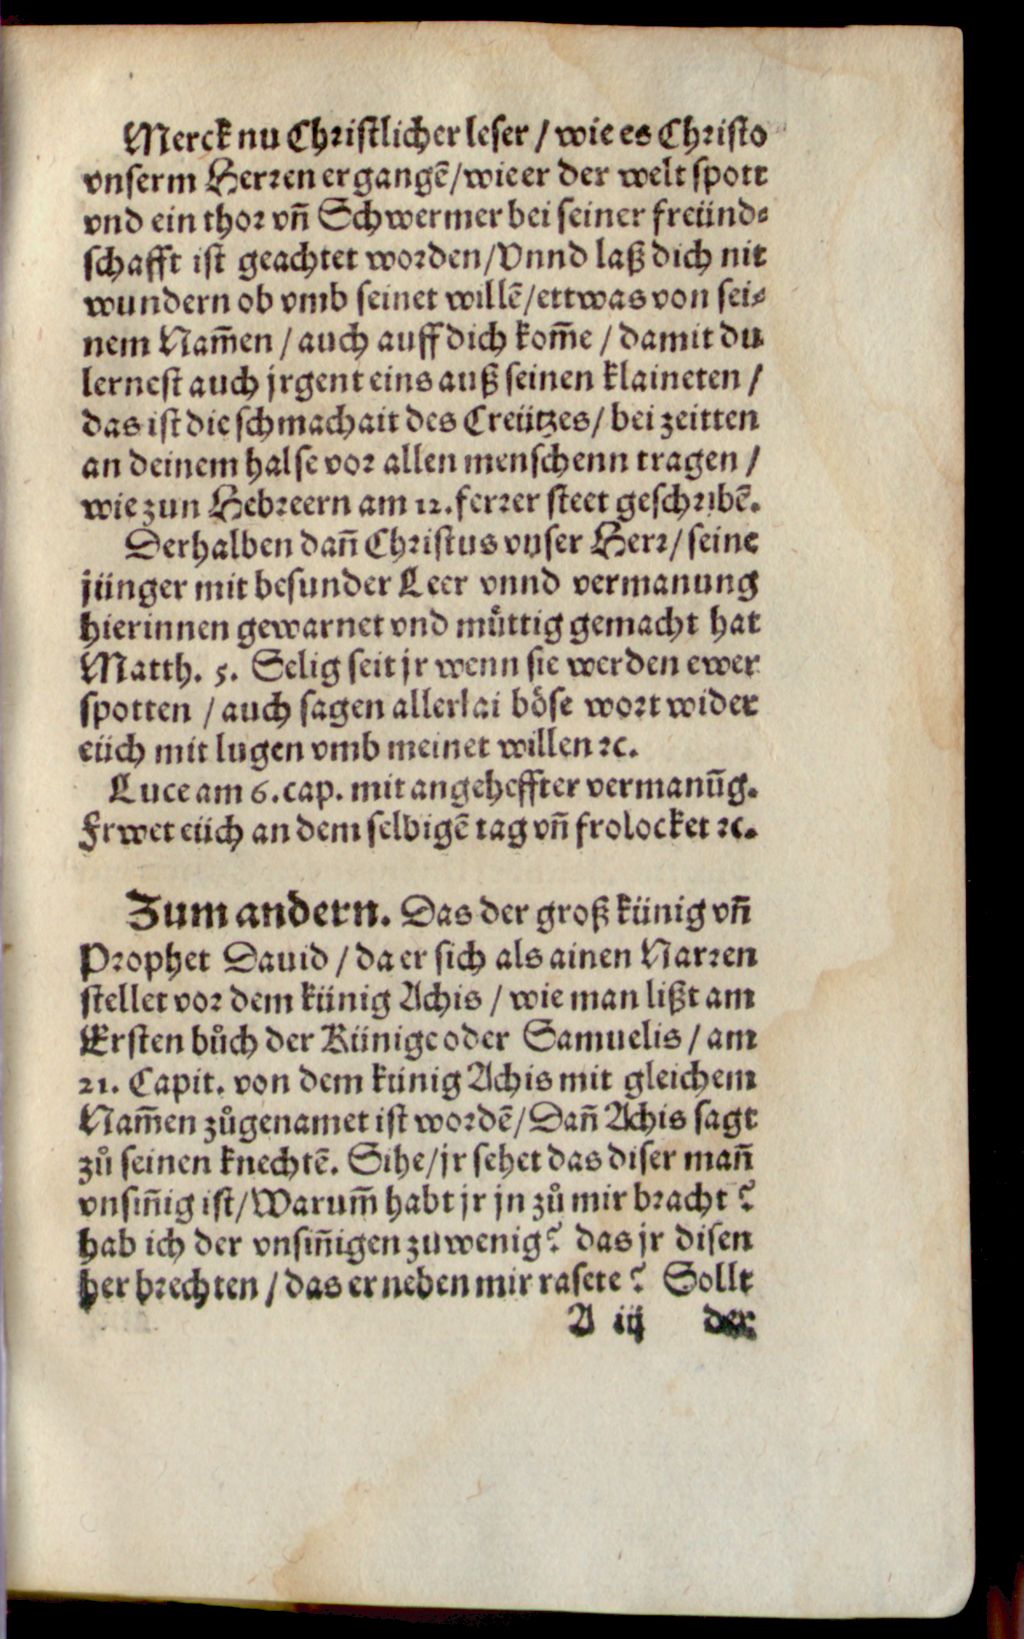 Merck nu Christlicher leser / wie es Christo
vnserm Herren ergangē / wie er der welt spott
vnd ein thor vñ Schwermer bei seiner freünd⸗
schafft ist geachtet worden / Vnnd laß dich nit
wundern ob vmb seinet willē / ettwas von sei⸗
nem Nam̄en / auch auff dich kom̄e / damit du
lernest auch jrgent eins auß seinen klaineten /
das ist die schmachait des Creützes / bei zeitten
an deinem halse vor allen menschenn tragen /
wie zun Hebreern am 12. ferrer steet geschribē.
Derhalben dañ Christus vnser Herr / seine
jünger mit besunder Leer vnnd vermanung
hierinnen gewarnet vnd můttig gemacht hat
Matth. 5. Selig seit jr wenn sie werden ewer
spotten / auch sagen allerlai böse wort wider
eüch mit lugen vmb meinet willen ꝛc.
Luce am 6. cap. mit angeheffter vermanūg.
Frwet eüch an dem selbigē tag vñ frolocket ꝛc.
Zum andern. Das der groß künig vñ
Prophet Dauid / da er sich als ainen Narren
stellet vor dem künig Achis / wie man lißt am
Ersten bůch der Künige oder Samuelis / am
21. Capit. von dem künig Achis mit gleichem
Nam̄en zůgenamet ist wordē / Dañ Achis sagt
zů seinen knechtē. Sihe / jr sehet das diser mañ
vnsiñig ist / Warum̄ habt jr jn zů mir bracht?
hab ich der vnsiñigen zu wenig? das jr disen
her brechten / das er neben mir rasete? Sollt
A iij der